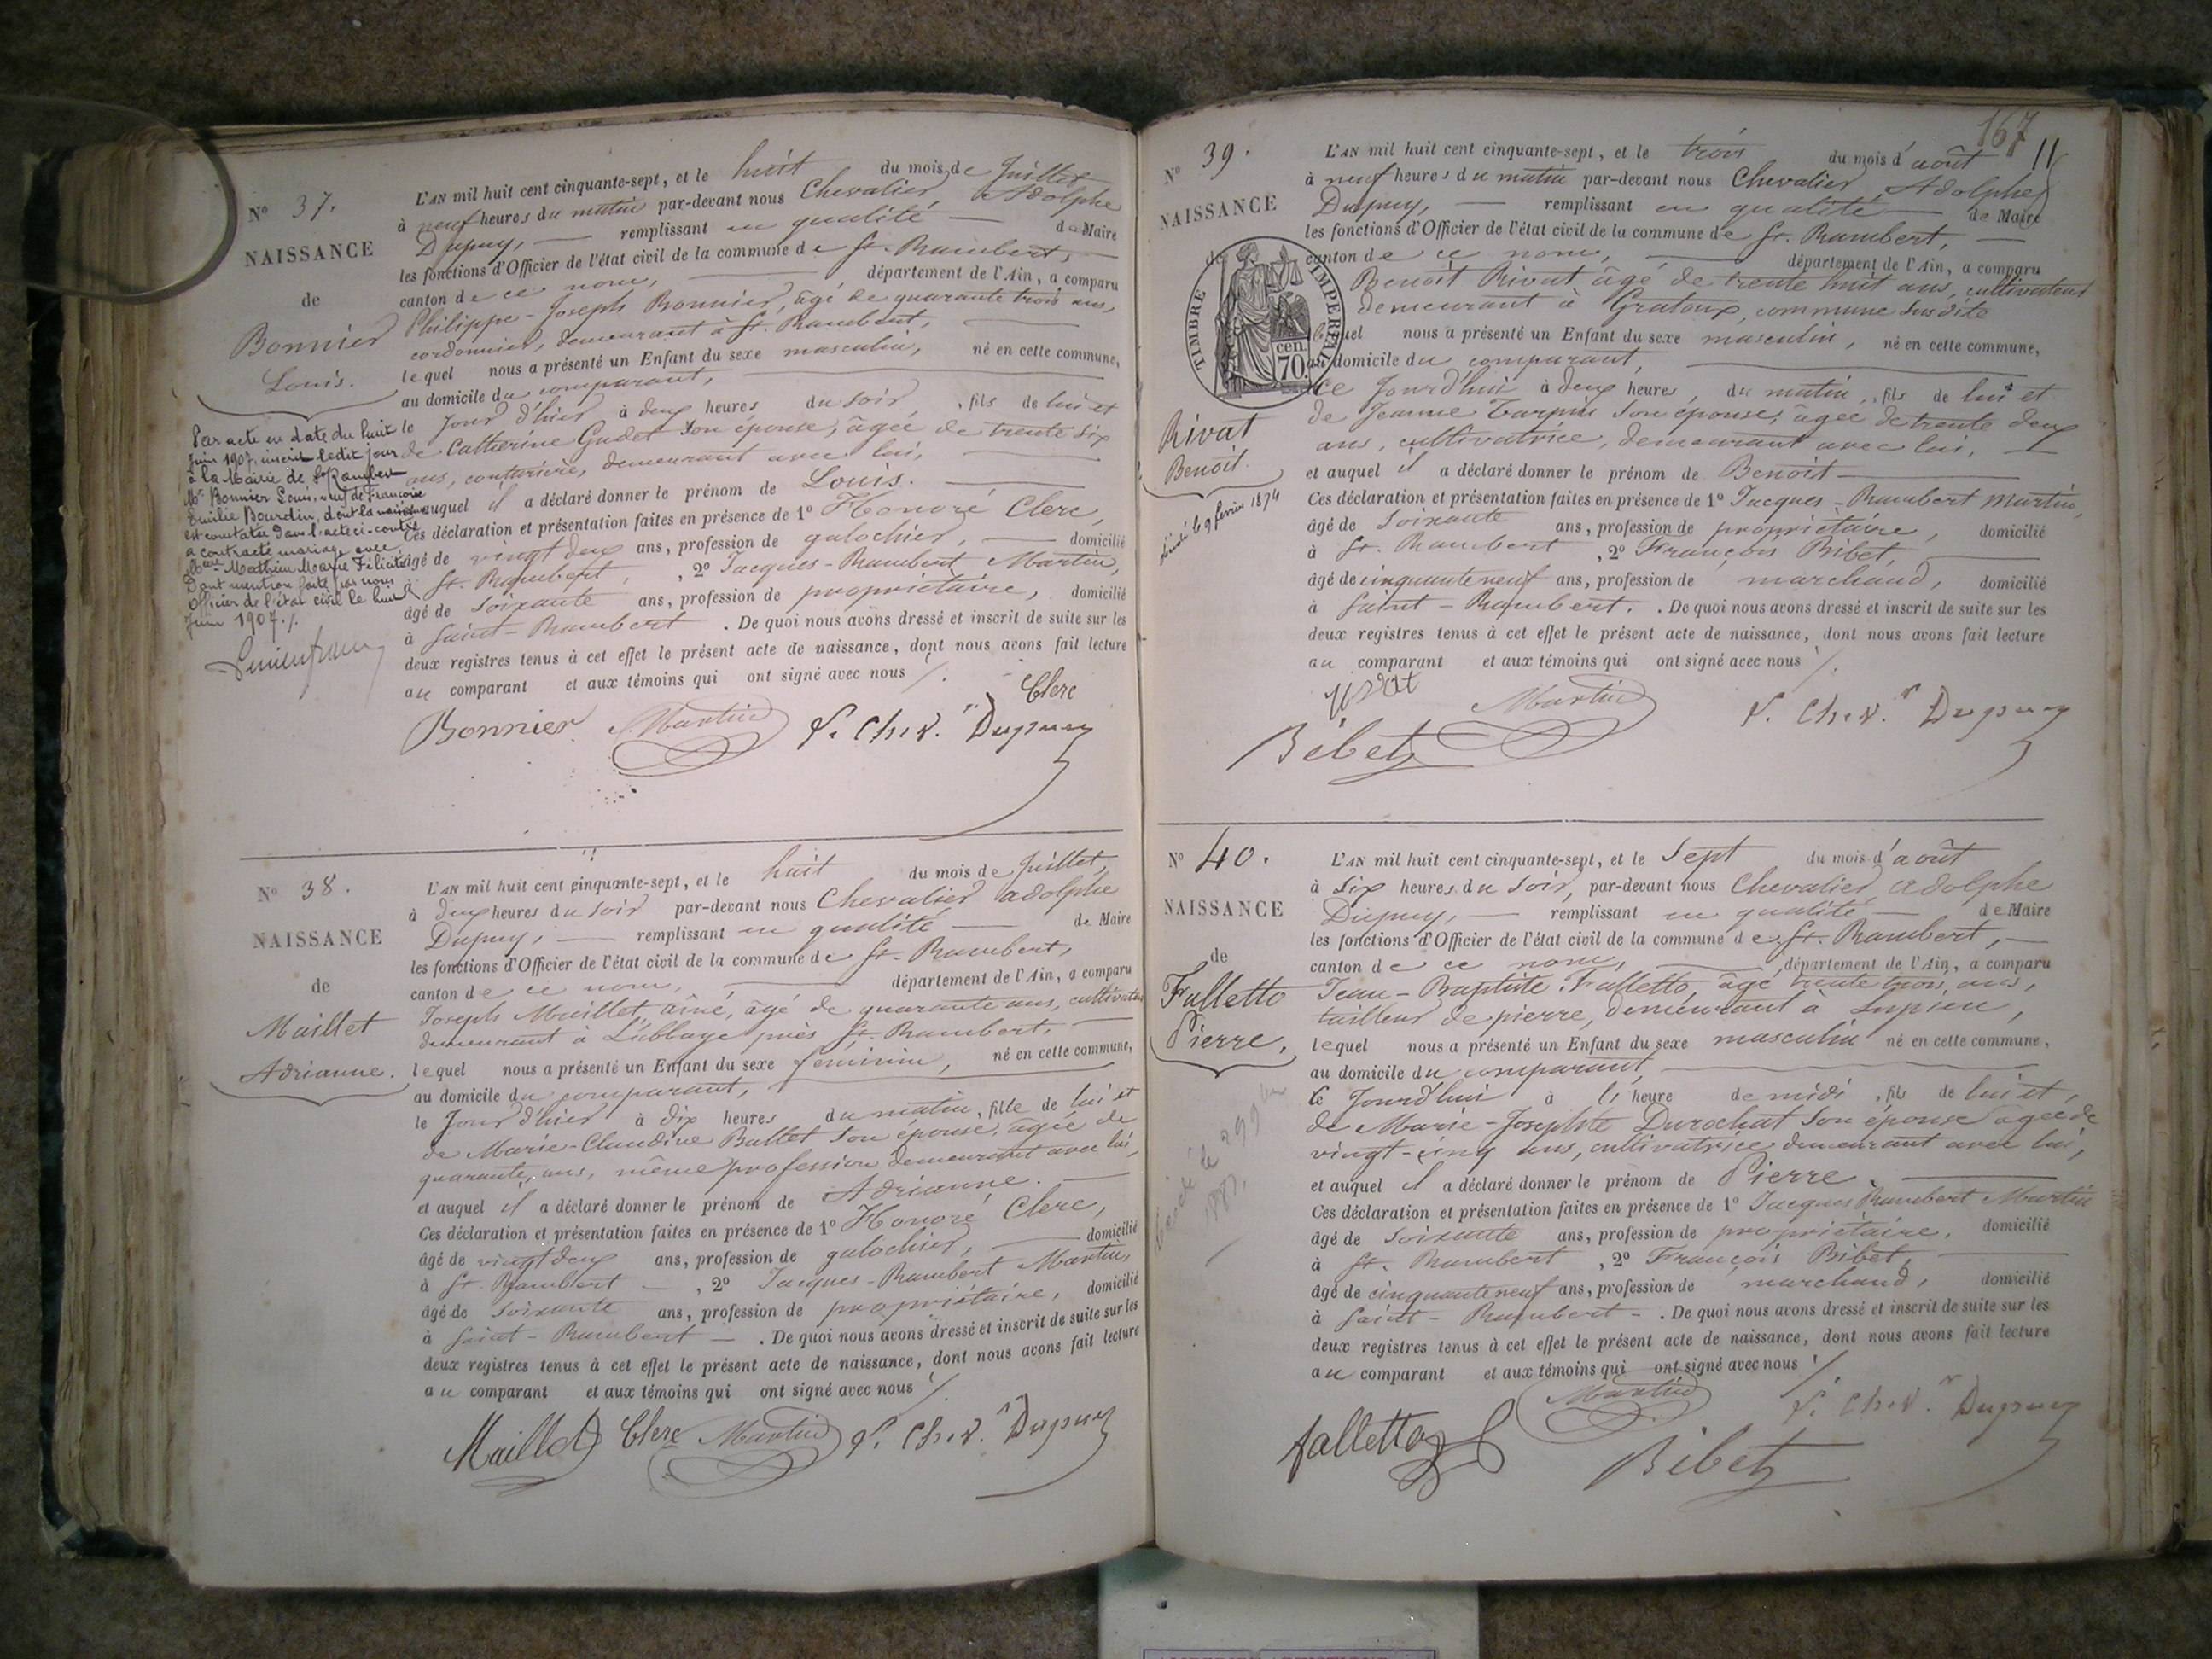 N° 37.
NAISSANCE
de
Bonnier
Louis.
Par acte en date du huit
Juin 1907, inscrit ledit jour
à la Mairie de St Rambert
Mr Bonnier Louis, veuf de Françoise
Emilie Bourdin, dont la naissance
est constatée dans l'acte ci-contre
a contracté mariage avec
Mathieu Marie Félicité
Dont mention faite par nous
Officier de l'état civil le huit
Juin 1907.
L'AN mil huit cent cinquante-sept, et le huit du mois de Juillet
à neuf heures du matin par-devant nous Chevalier, Adolphe
Dupuy, remplissant en qualité de Maire
les fonctions d'Officier de l'état civil de la commune de St. Rambert,
canton de ce nom, département de l'Ain, a comparu
Philippe-Joseph Bonnier, âgé de quarante trois ans,
cordonnier, demeurant à St. Rambert,
lequel nous a présenté un Enfant du sexe masculin, né en cette commune,
au domicile du comparant,
le Jour d'hier à deux heures du soir, fils de lui et
de Catherine Gudet son épouse, âgée de trente six
ans, couturière, demeurant avec lui,
et auquel il a déclaré donner le prénom de Louis.
Ces déclaration et présentation faites en présence de 1° Honoré Clerc,
âgé de vingt deux ans, profession de galochier, domicilié
à St. Rambert, 2° Jacques-Rambert Martin,
âgé de soixante ans, profession de propriétaire, domicilié
à Saint-Rambert. De quoi nous avons dressé et inscrit de suite sur les
deux registres tenus à cet effet le présent acte de naissance, dont nous avons fait lecture
au comparant et aux témoins qui ont signé avec nous
Clerc
Bonnier Martin Chev.r Dupuy
N° 38.
NAISSANCE
de
Maillet
Adrianne.
L'AN mil huit cent cinquante-sept, et le huit du mois de Juillet,
à deux heures du soir par-devant nous Chevalier adolphe
Dupuy, remplissant en qualité de Maire
les fonctions d'Officier de l'état civil de la commune de St. Rambert,
canton de ce nom, département de l'Ain, a comparu
Joseph Maillet, aîné, âgé de quarante ans, cultivateur
demeurant à L'abbaye près St. Rambert,
lequel nous a présenté un Enfant du sexe féminin, né en cette commune,
au domicile du comparant,
le Jour d'hier à dix heures du matin, fille de lui et
de Marie-Claudine Ballet son épouse, âgée de
quarante, ans, même profession demeurant avec lui,
et auquel il a déclaré donner le prénom de Adrianne.
Ces déclaration et présentation faites en présence de 1° Honoré Clerc,
âgé de vingt deux ans, profession de galochier, domicilié
à St. Rambert, 2° Jacques-Rambert Martin,
âgé de soixante ans, profession de propriétaire, domicilié
à Saint-Rambert. De quoi nous avons dressé et inscrit de suite sur les
deux registres tenus à cet effet le présent acte de naissance, dont nous avons fait lecture
au comparant et aux témoins qui ont signé avec nous
Maillet Clerc Martin Chev.r Dupuy
167
11
N° 39.
NAISSANCE
de
TIMBRE IMPERIAL
70 cen.
Rivat
Benoit.
décédé le 9 février 1874
L'AN mil huit cent cinquante-sept, et le trois du mois d'août
à neuf heures du matin par-devant nous Chevalier Adolphe
Dupuy, remplissant en qualité de Maire
les fonctions d'Officier de l'état civil de la commune de St. Rambert,
canton de ce nom, département de l'Ain, a comparu
Benoit Rivat âgé de trente huit ans, cultivateur
demeurant à Gratoux, commune susdite
lequel nous a présenté un Enfant du sexe masculin, né en cette commune,
au domicile du comparant,
ce Jourd'hui à deux heures, du matin, fils de lui et
de Jeanne Tarpin son épouse, âgée de trente deux
ans, cultivatrice, demeurant avec lui,
et auquel il a déclaré donner le prénom de Benoit
Ces déclaration et présentation faites en présence de 1° Jacques-Rambert Martin,
âgé de soixante ans, profession de propriétaire, domicilié
à St. Rambert, 2° François Bibet,
âgé de cinquante neuf ans, profession de marchand, domicilié
à Saint-Rambert. De quoi nous avons dressé et inscrit de suite sur les
deux registres tenus à cet effet le présent acte de naissance, dont nous avons fait lecture
au comparant et aux témoins qui ont signé avec nous
Martin Chev.r Dupuy
Bibet
N° 40.
NAISSANCE
de
Falletto
Pierre,
L'AN mil huit cent cinquante-sept, et le Sept du mois d'août
à six heures du soir, par-devant nous Chevalier adolphe
Dupuy, remplissant en qualité de Maire
les fonctions d'Officier de l'état civil de la commune de St. Rambert,
canton de ce nom, département de l'Ain, a comparu
Jean-Baptiste Falletto, âgé trente trois, ans,
tailleur de pierre, demeurant à Supieu,
lequel nous a présenté un Enfant du sexe masculin né en cette commune,
au domicile du comparant,
le Jourd'hui à l' heure de midi, fils de lui et,
de Marie-Josephte Durochat son épouse âgée de
vingt-cinq ans, cultivatrice demeurant avec lui,
et auquel il a déclaré donner le prénom de Pierre
Ces déclaration et présentation faites en présence de 1° Jacques Rambert Martin
âgé de soixante ans, profession de propriétaire, domicilié
à St. Rambert, 2° François Bibet,
âgé de cinquante neuf ans, profession de marchand, domicilié
à Saint-Rambert. De quoi nous avons dressé et inscrit de suite sur les
deux registres tenus à cet effet le présent acte de naissance, dont nous avons fait lecture
au comparant et aux témoins qui ont signé avec nous
Martin Chev.r Dupuy
falletto Bibet